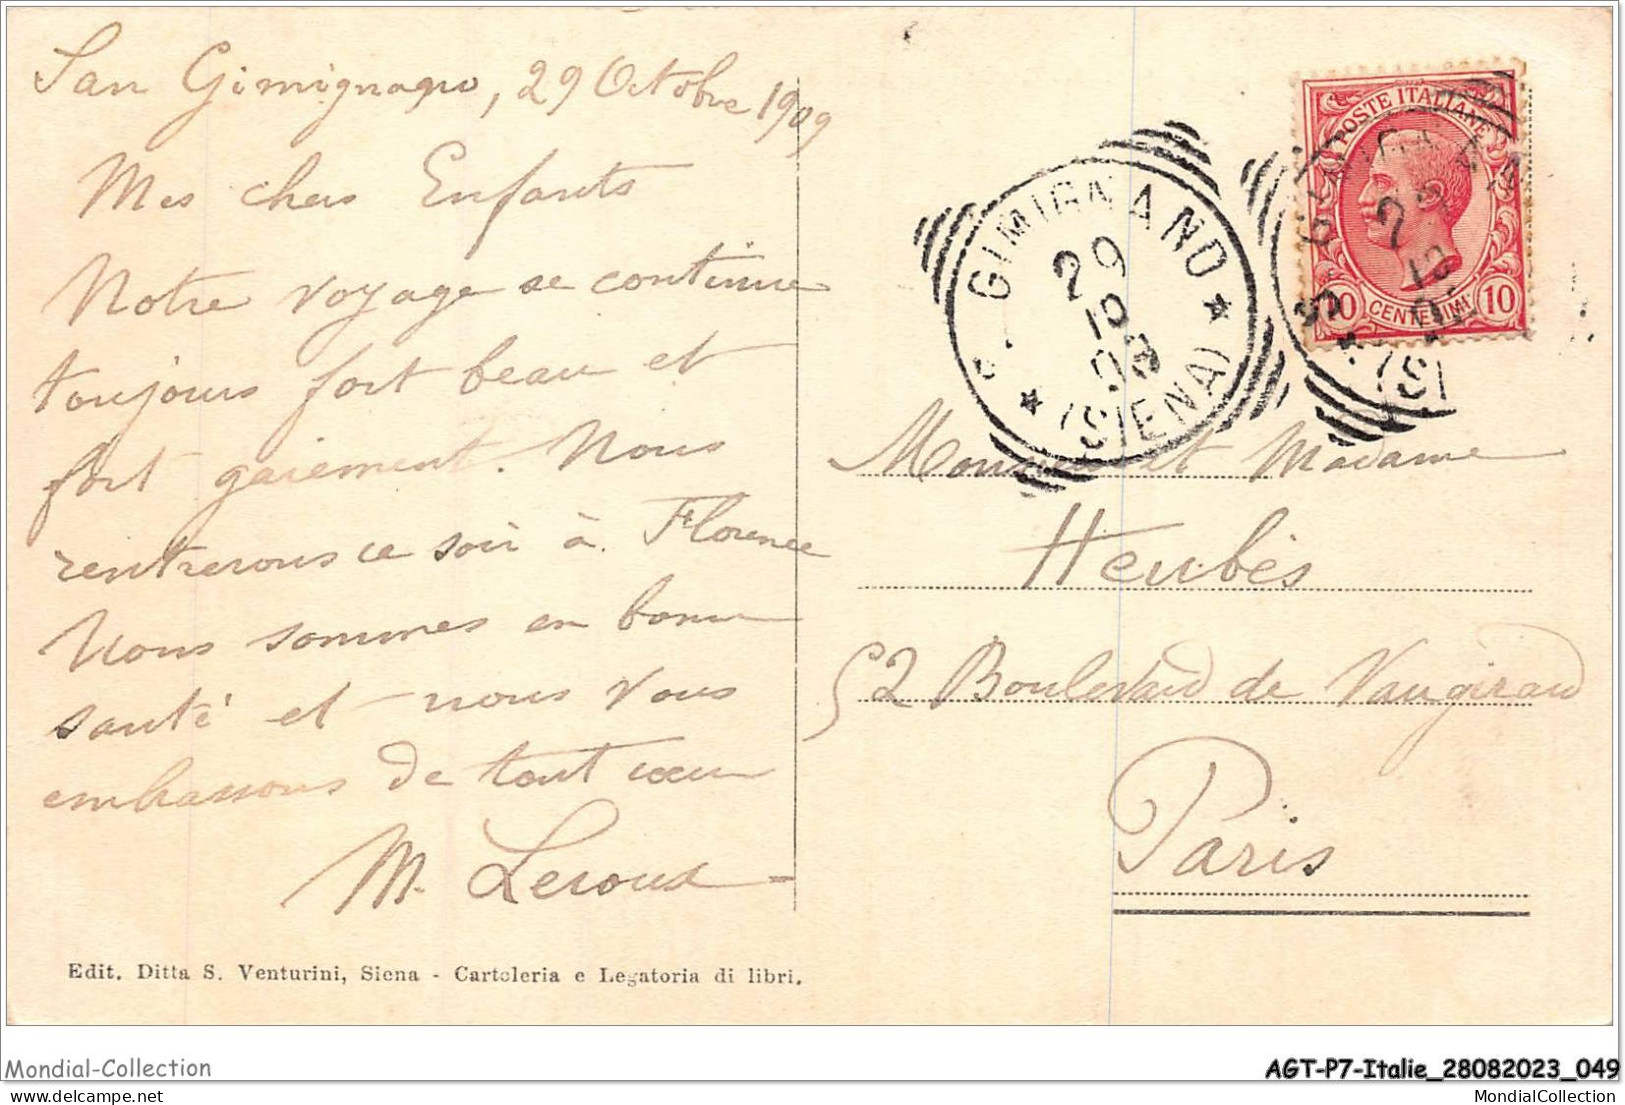 San Gimignano, 29 Octobre 1909
Mes chers Enfants
Notre voyage se continue
toujours fort beau et
fort gaiement. Nous
rentrerons ce soir à Florence
Nous sommes en bonne
santé et nous vous
embrassons de tout cœur
M. Leroux
Edit. Ditta S. Venturini, Siena - Cartoleria e Legatoria di libri.
POSTE ITALIANE
10 CENTESIMI 10
S. GIMIGNANO
29
10
09
(SIENA)
Monsieur et Madame
Heubès
52 Boulevard de Vaugirard
Paris
Mondial-Collection
AGT-P7-Italie_28082023_049
www.delcampe.net
MondialCollection